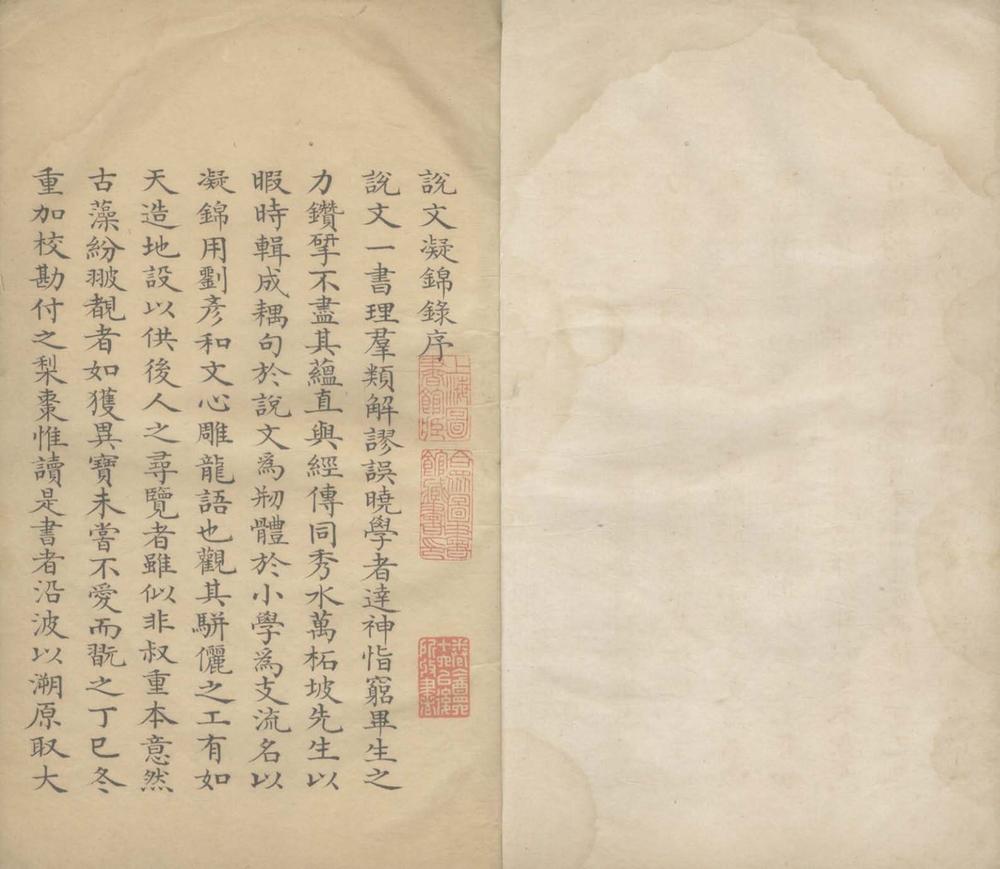 說文凝錦錄序
說文一書理羣類解謬誤曉學者達神恉窮畢生之
力鑽揅不盡其蘊直與經傳同秀水萬柘坡先生以
暇時輯成耦句於說文為剏體於小學為支流名以
凝錦用劉彥和文心雕龍語也觀其駢儷之工有如
天造地設以供後人之尋覽者雖似非叔重本意然
古藻紛翍覩者如獲異寶未嘗不愛而翫之丁巳冬
重加校勘付之梨棗惟讀是書者沿波以溯原取大
上海圖書館藏
合眾圖書館藏書印